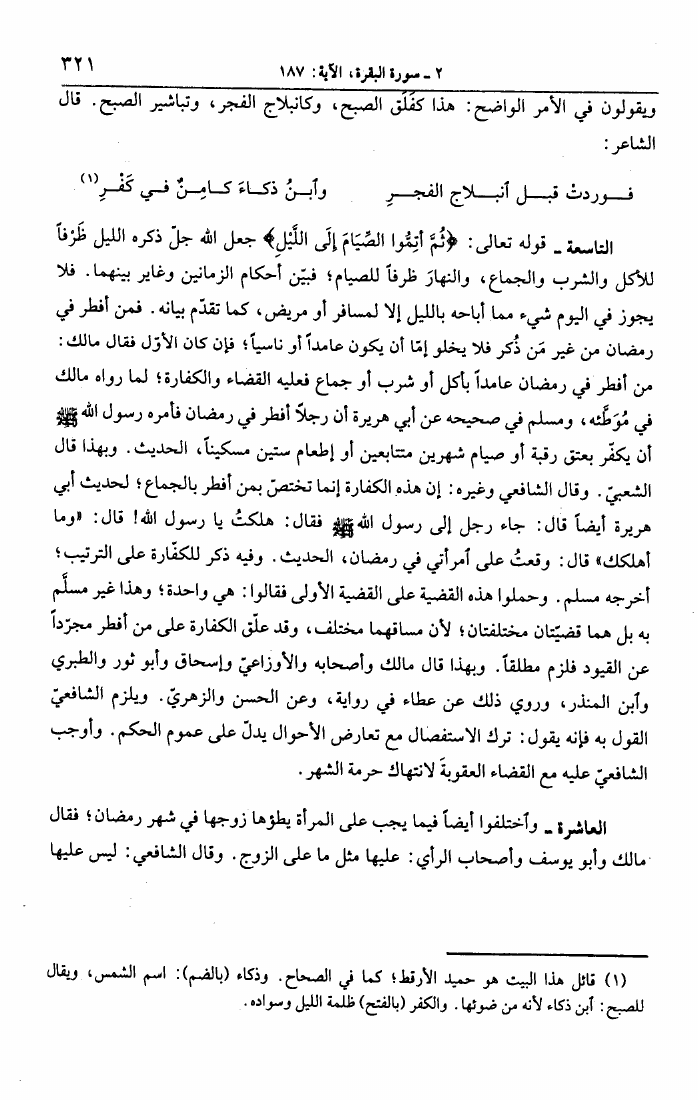 ٢ ـ سورة البقرة، الآية: ١٨٧
٣٢١
ويقولون في الأمر الواضح: هذا كفَلَق الصبح، وكانبلاج الفجر، وتباشير الصبح. قال
الشاعر:
فوردتْ قبل ٱنبلاج الفجرِ وٱبنُ ذكاءَ كامِنٌ في كَفْرِ(١)
التاسعة ـ قوله تعالى: ﴿ثُمَّ أَتِمُّوا الصِّيَامَ إِلَى اللَّيْلِ﴾ جعل الله جلّ ذكره الليل ظَرْفاً
للأكل والشرب والجماع، والنهارَ ظرفاً للصيام؛ فبيّن أحكام الزمانين وغاير بينهما. فلا
يجوز في اليوم شيء مما أباحه بالليل إلا لمسافر أو مريض، كما تقدّم بيانه. فمن أفطر في
رمضان من غير مَن ذُكر فلا يخلو إمّا أن يكون عامداً أو ناسياً؛ فإن كان الأوّل فقال مالك:
من أفطر في رمضان عامداً بأكل أو شرب أو جماع فعليه القضاء والكفارة؛ لما رواه مالك
في مُوَطَّئه، ومسلم في صحيحه عن أبي هريرة أن رجلاً أفطر في رمضان فأمره رسول الله ﷺ
أن يكفّر بعتق رقبة أو صيام شهرين متتابعين أو إطعام ستين مسكيناً، الحديث. وبهذا قال
الشعبيّ. وقال الشافعي وغيره: إن هذه الكفارة إنما تختصّ بمن أفطر بالجماع؛ لحديث أبي
هريرة أيضاً قال: جاء رجل إلى رسول الله ﷺ فقال: هلكتُ يا رسول الله! قال: «وما
أهلكك» قال: وقعتُ على ٱمرأتي في رمضان، الحديث. وفيه ذكر للكفّارة على الترتيب؛
أخرجه مسلم. وحملوا هذه القضية على القضية الأولى فقالوا: هي واحدة؛ وهذا غير مسلَّم
به بل هما قضيّتان مختلفتان؛ لأن مساقهما مختلف، وقد علّق الكفارة على من أفطر مجرّداً
عن القيود فلزم مطلقاً. وبهذا قال مالك وأصحابه والأوزاعيّ وإسحاق وأبو ثور والطبري
وٱبن المنذر، وروي ذلك عن عطاء في رواية، وعن الحسن والزهريّ. ويلزم الشافعيّ
القول به فإنه يقول: ترك الاستفصال مع تعارض الأحوال يدلّ على عموم الحكم. وأوجب
الشافعيّ عليه مع القضاء العقوبةَ لانتهاك حرمة الشهر.
العاشرة ـ وٱختلفوا أيضاً فيما يجب على المرأة يطؤها زوجها في شهر رمضان؛ فقال
مالك وأبو يوسف وأصحاب الرأي: عليها مثل ما على الزوج. وقال الشافعي: ليس عليها
(١) قائل هذا البيت هو حميد الأرقط؛ كما في الصحاح. وذكاء (بالضم): اسم الشمس، ويقال
للصبح: ٱبن ذكاء لأنه من ضوئها. والكفر (بالفتح) ظلمة الليل وسواده.